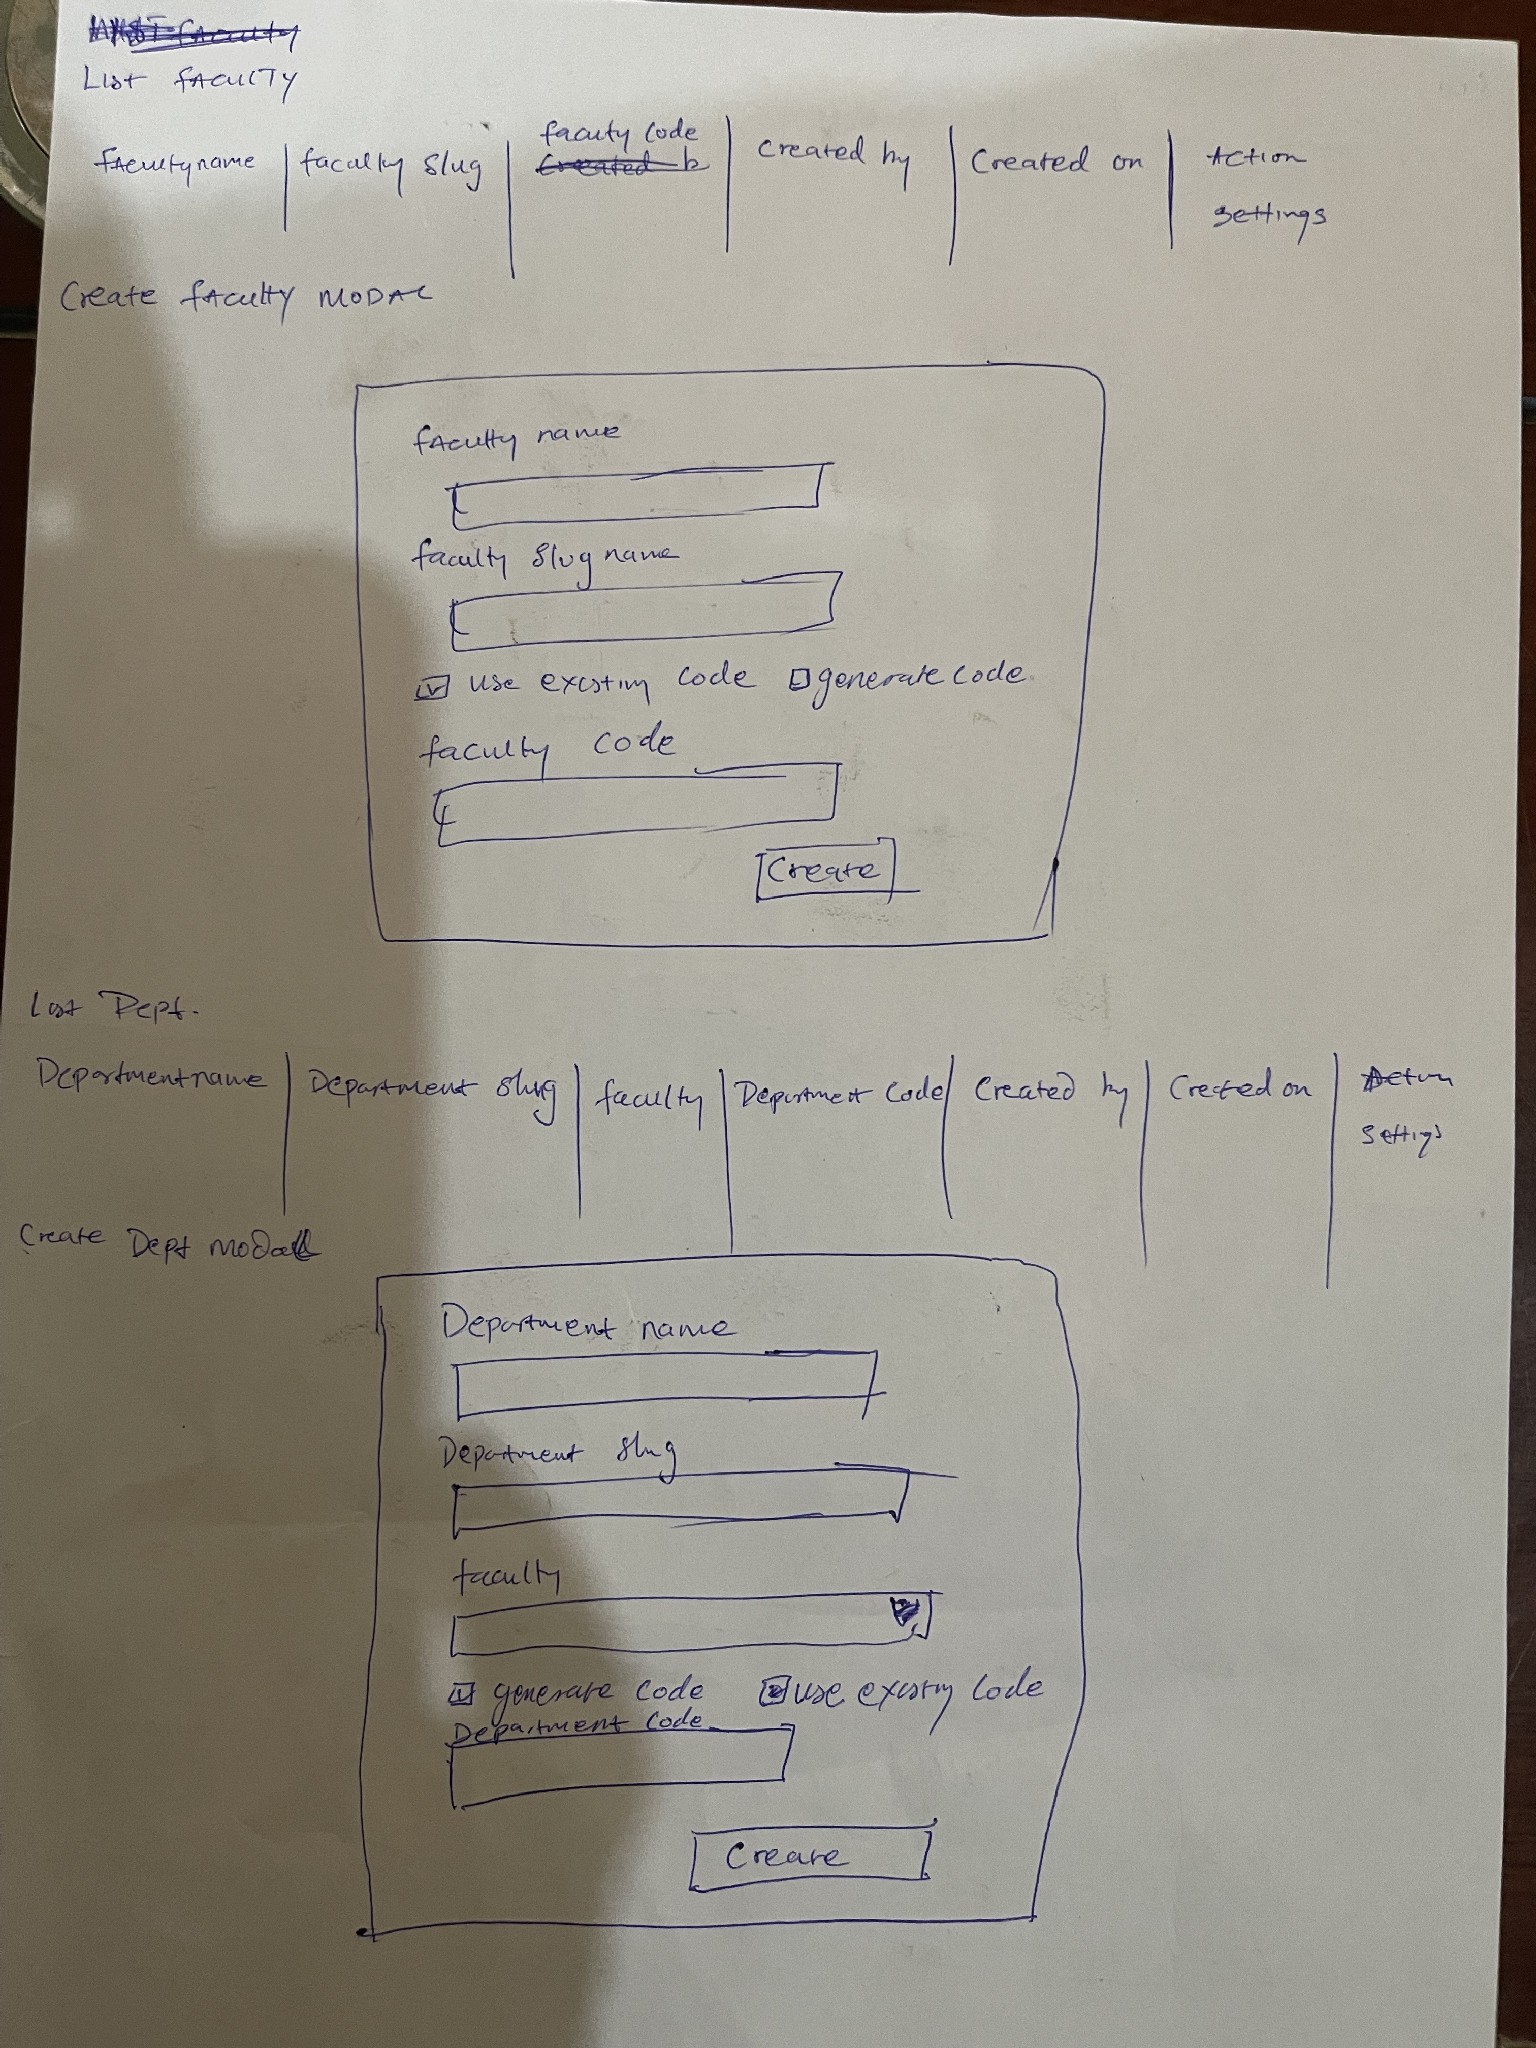 List faculty
faculty name | faculty slug | faculty code | Created by | Created on | Action
settings
Create faculty MODAL
faculty name
faculty slug name
use existing code generate code
faculty code
Create
List Dept.
Department name | Department slug | faculty | Department Code | Created by | Created on | Action
settings
Create Dept modal
Department name
Department slug
faculty
generate code use existing code
Department Code
Create